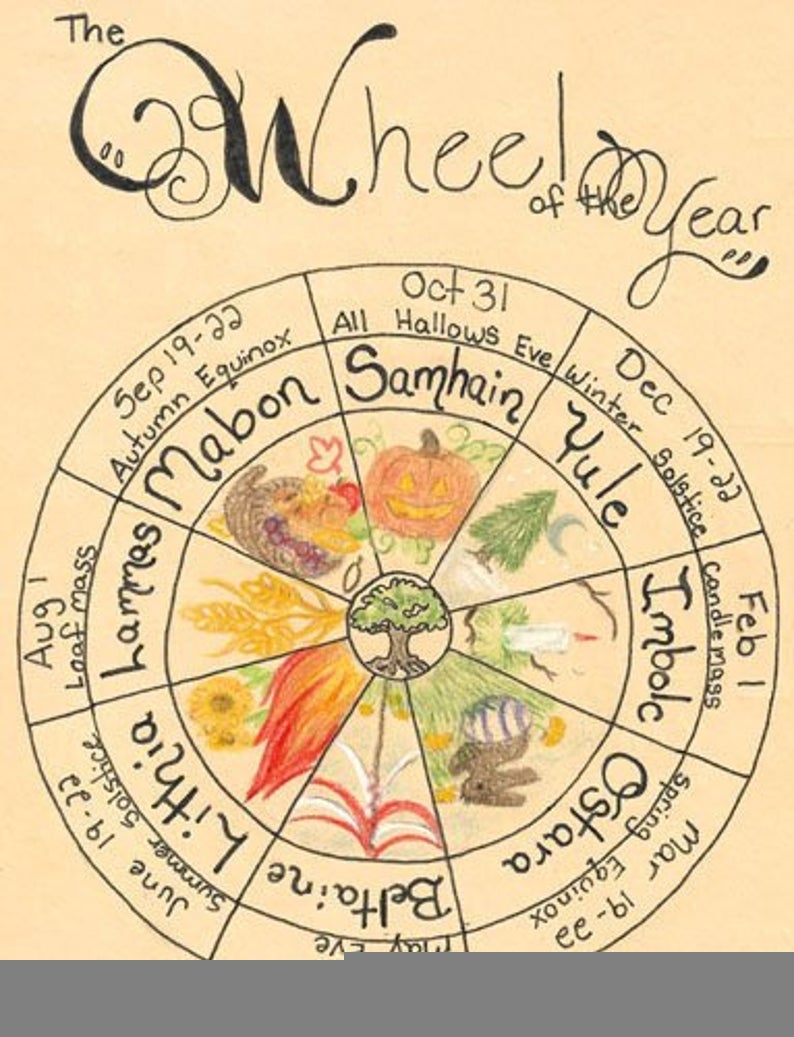 The
Wheel
of the
Year
Oct 31
All Hallows Eve
Samhain
Dec 19-22
Winter Solstice
Yule
Feb 1
Candlemass
Imbolc
Mar 19-22
Spring Equinox
Ostara
May Eve
Beltaine
June 19-22
Summer Solstice
Lithia
Aug 1
Loaf mass
Lammas
Sep 19-22
Autumn Equinox
Mabon